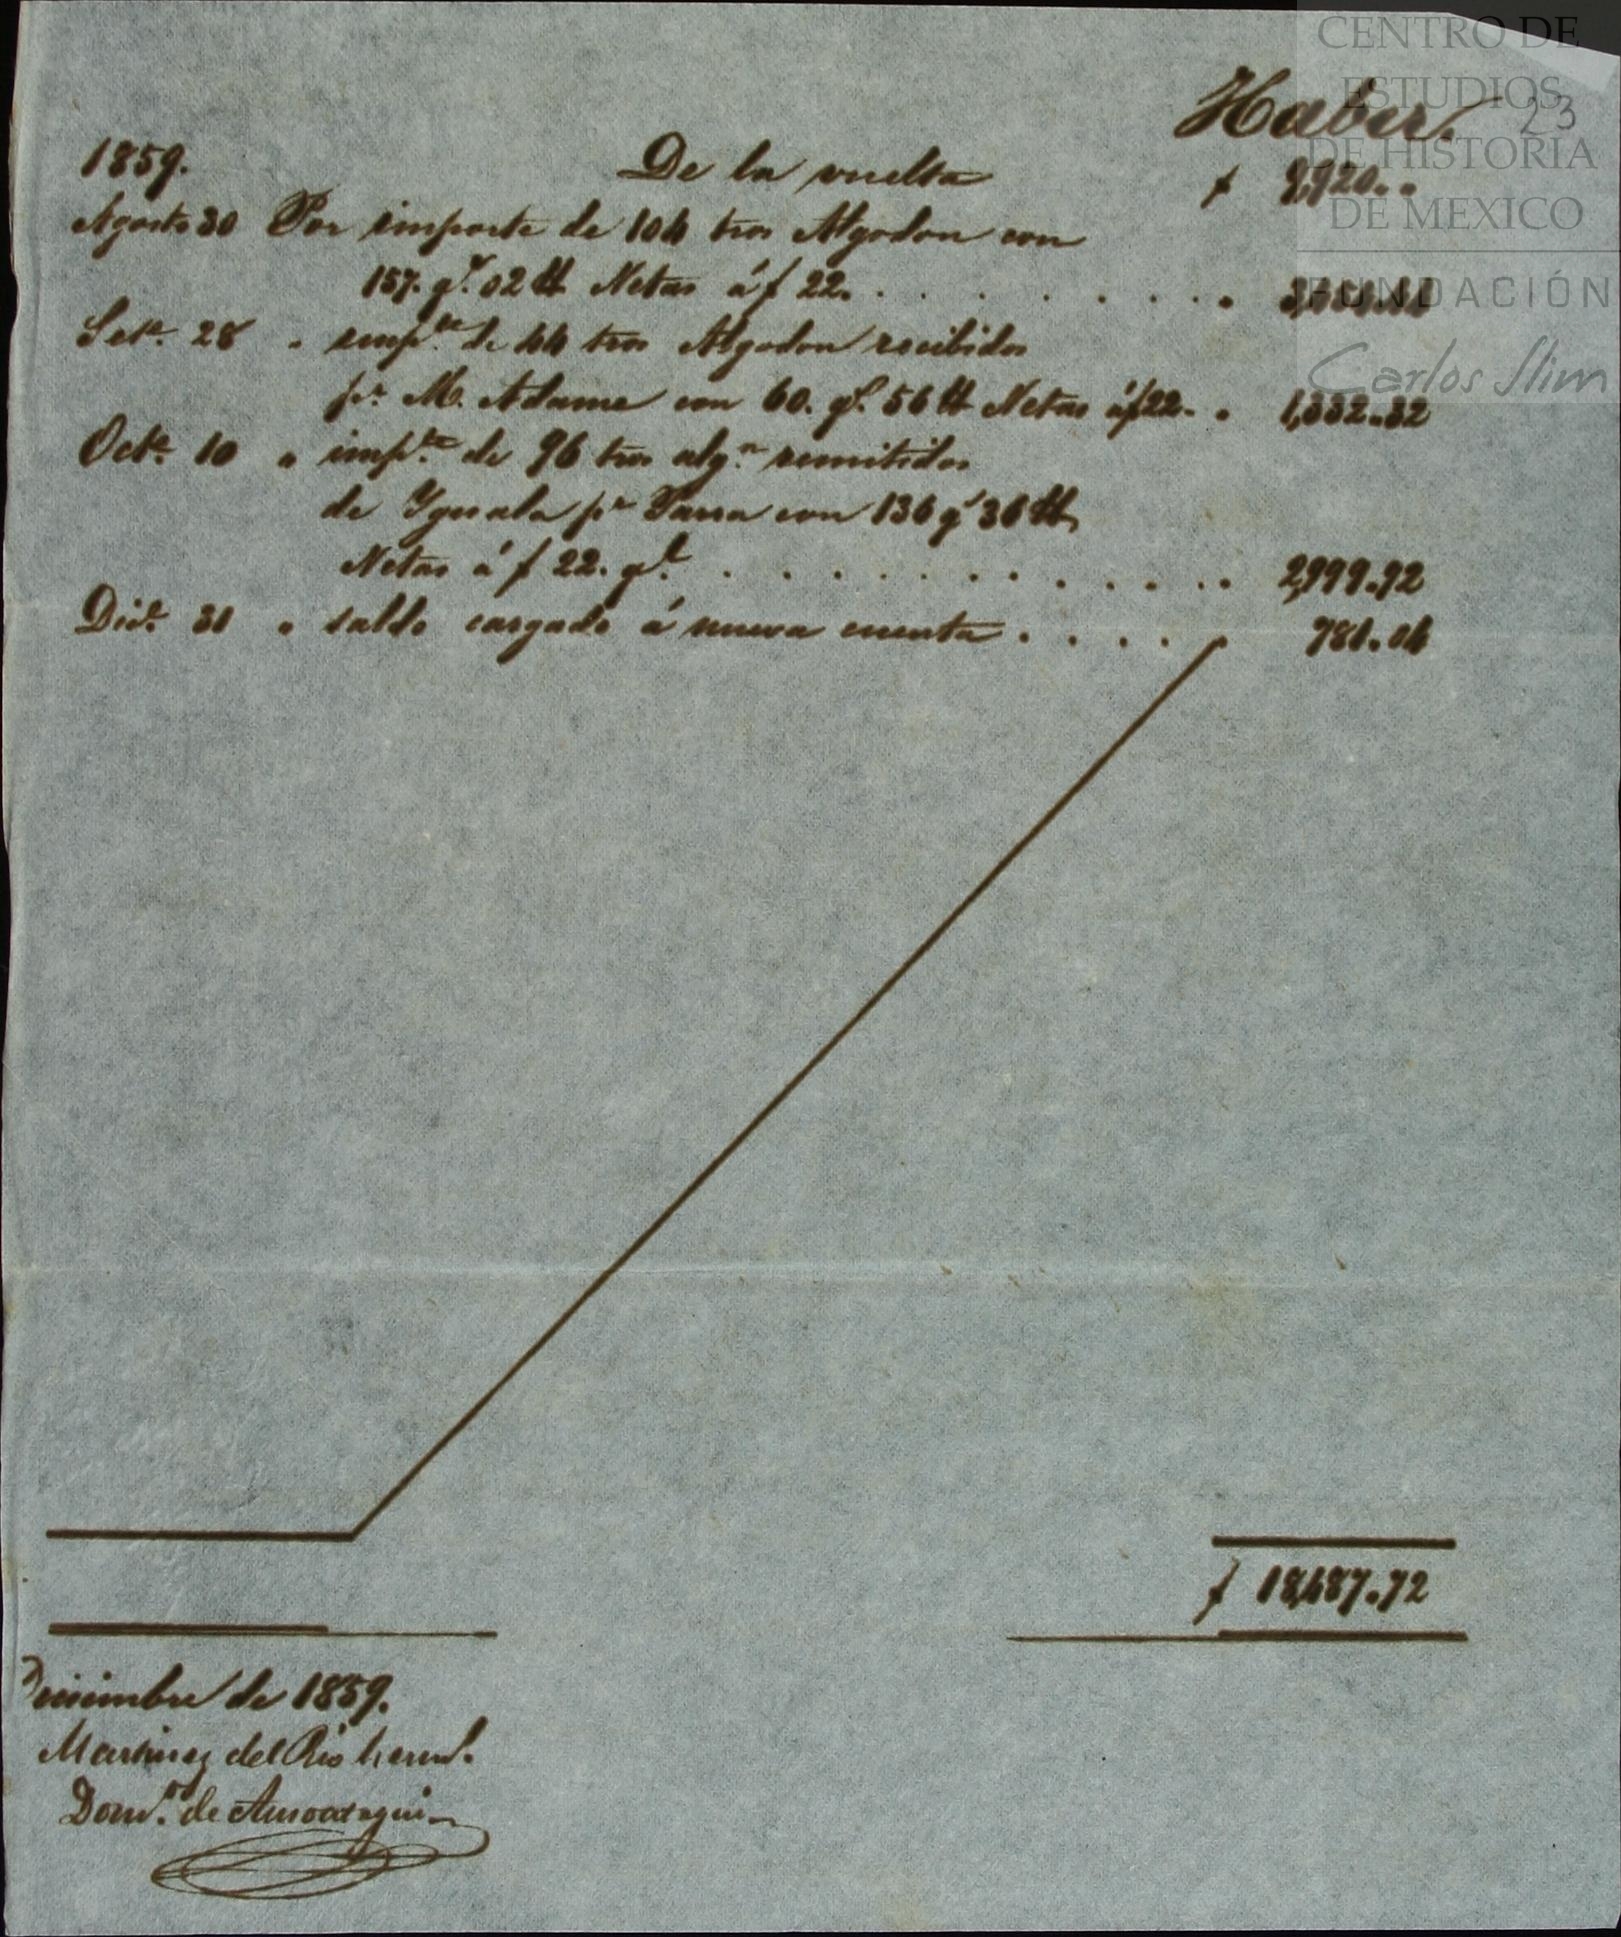 CENTRO DE
ESTUDIOS
DE HISTORIA
DE MEXICO
FUNDACIÓN
Carlos Slim
Haber. 23
1859. De la vuelta $ 9,920. .
Agosto 30 Por importe de 104 tros Algodon con
157. q.s 02 lb Netas á $ 22. . . . . . . . . 3,454.44
Set.e 28 " imp.te de 44 tros Algodon recibidos
p.r M. Adame con 60. q.s 56 lb Netas á $ 22. . 1,332.32
Oct.e 10 " imp.te de 96 tros alg.n remitidos
de Yguala p.r Parra con 136 q.s 36 lb
Netas á $ 22. q.l . . . . . . . . . . . . 2,999.92
Dic.e 31 " saldo cargado á nueva cuenta . . . . . 781.04
$ 18,487.72
Diciembre de 1859.
Martinez del Rio herm.s
Dom.o de Ansoategui